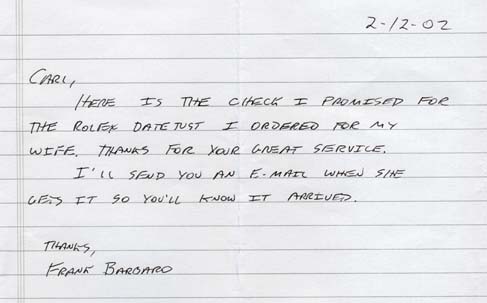 2-12-02
CARL,
HERE IS THE CHECK I PROMISED FOR
THE ROLEX DATEJUST I ORDERED FOR MY
WIFE. THANKS FOR YOUR GREAT SERVICE.
I'LL SEND YOU AN E-MAIL WHEN SHE
GETS IT SO YOU'LL KNOW IT ARRIVED.
THANKS,
FRANK BARBARO